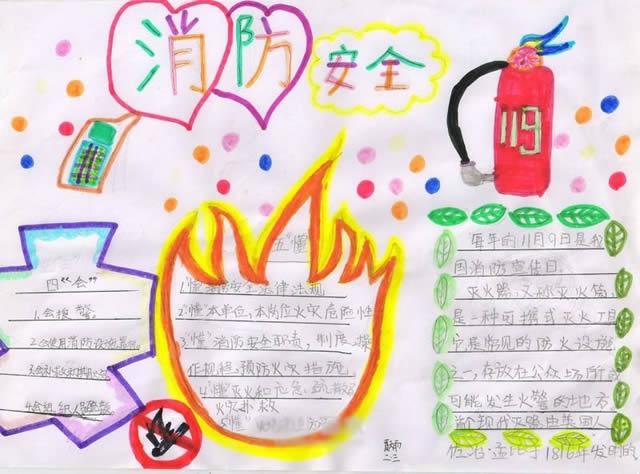 消防安全
119
四"会"
1.会报警
2.会使用消防设施器材
4.会组织人员疏散
五"懂"
1."懂"消防安全法律法规
2."懂"本单位,本岗位火灾危险性
3."懂"消防安全职责,制度,操
作规程,预防火灾措施
4."懂"灭火和应急,疏散
火灾扑救
5"懂"
每年的11月9日是我
国消防宣传日。
灭火器,又称灭火筒,
是一种可携式灭火工具
它是常见的防火设施
之一,存放在公众场所或
可能发生火警的地方
首个现代灭火器由英国人
佐治·孟比于1816年发明的
二.三